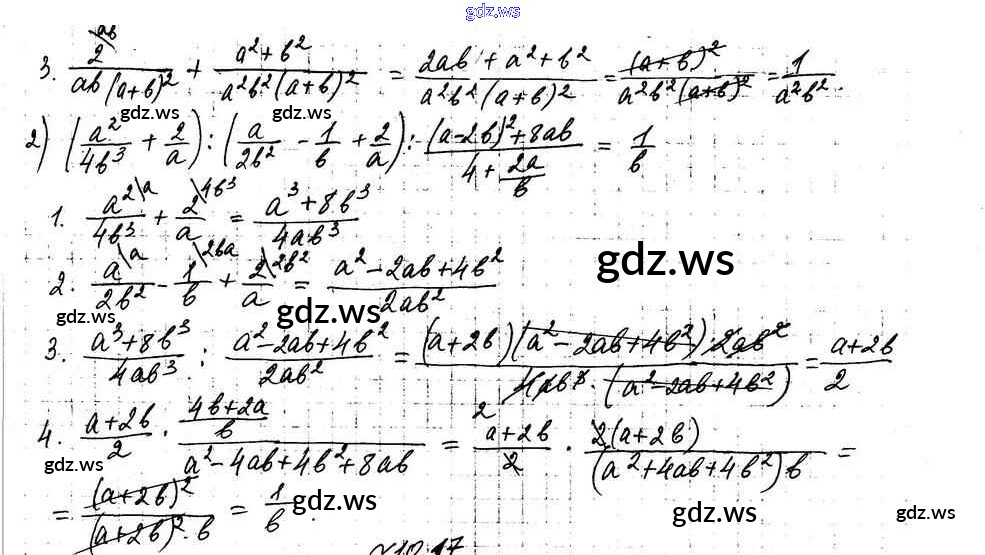 gdz.ws
3. 2\ab/(ab(a+b)²) + (a²+b²)/(a²b²(a+b)²) = (2ab + a²+b²)/(a²b²(a+b)²) = (a+b)²/(a²b²(a+b)²) = 1/(a²b²).
gdz.ws gdz.ws
2) (a²/(4b³) + 2/a) : (a/(2b²) - 1/b + 2/a) : ((a-2b)²+8ab)/(4 + 2a/b) = 1/b
1. a²\a/(4b³) + 2\4b³/a = (a³+8b³)/(4ab³)
gdz.ws
2. a\a/(2b²) - 1\2ba/b + 2\2b²/a = (a²-2ab+4b²)/(2ab²)
gdz.ws gdz.ws
3. (a³+8b³)/(4ab³) : (a²-2ab+4b²)/(2ab²) = ((a+2b)(a²-2ab+4b²)·2ab²)/(4ab³·(a²-2ab+4b²)) = (a+2b)/2
2
4. (a+2b)/2 · ((4b+2a)/b)/(a²-4ab+4b²+8ab) = (a+2b)/2 · 2(a+2b)/((a²+4ab+4b²)b) =
gdz.ws
= (a+2b)²/((a+2b)²·b) = 1/b.
gdz.ws gdz.ws gdz.ws